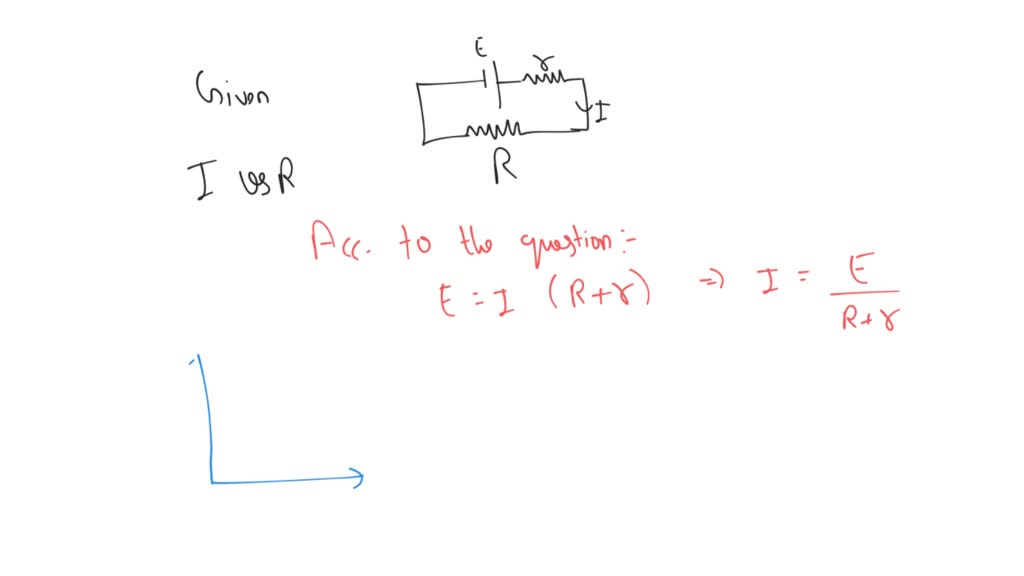 E
r
Given
I
R
I vs R
Acc. to the question :-
E = I (R+r) => I = E / R+r